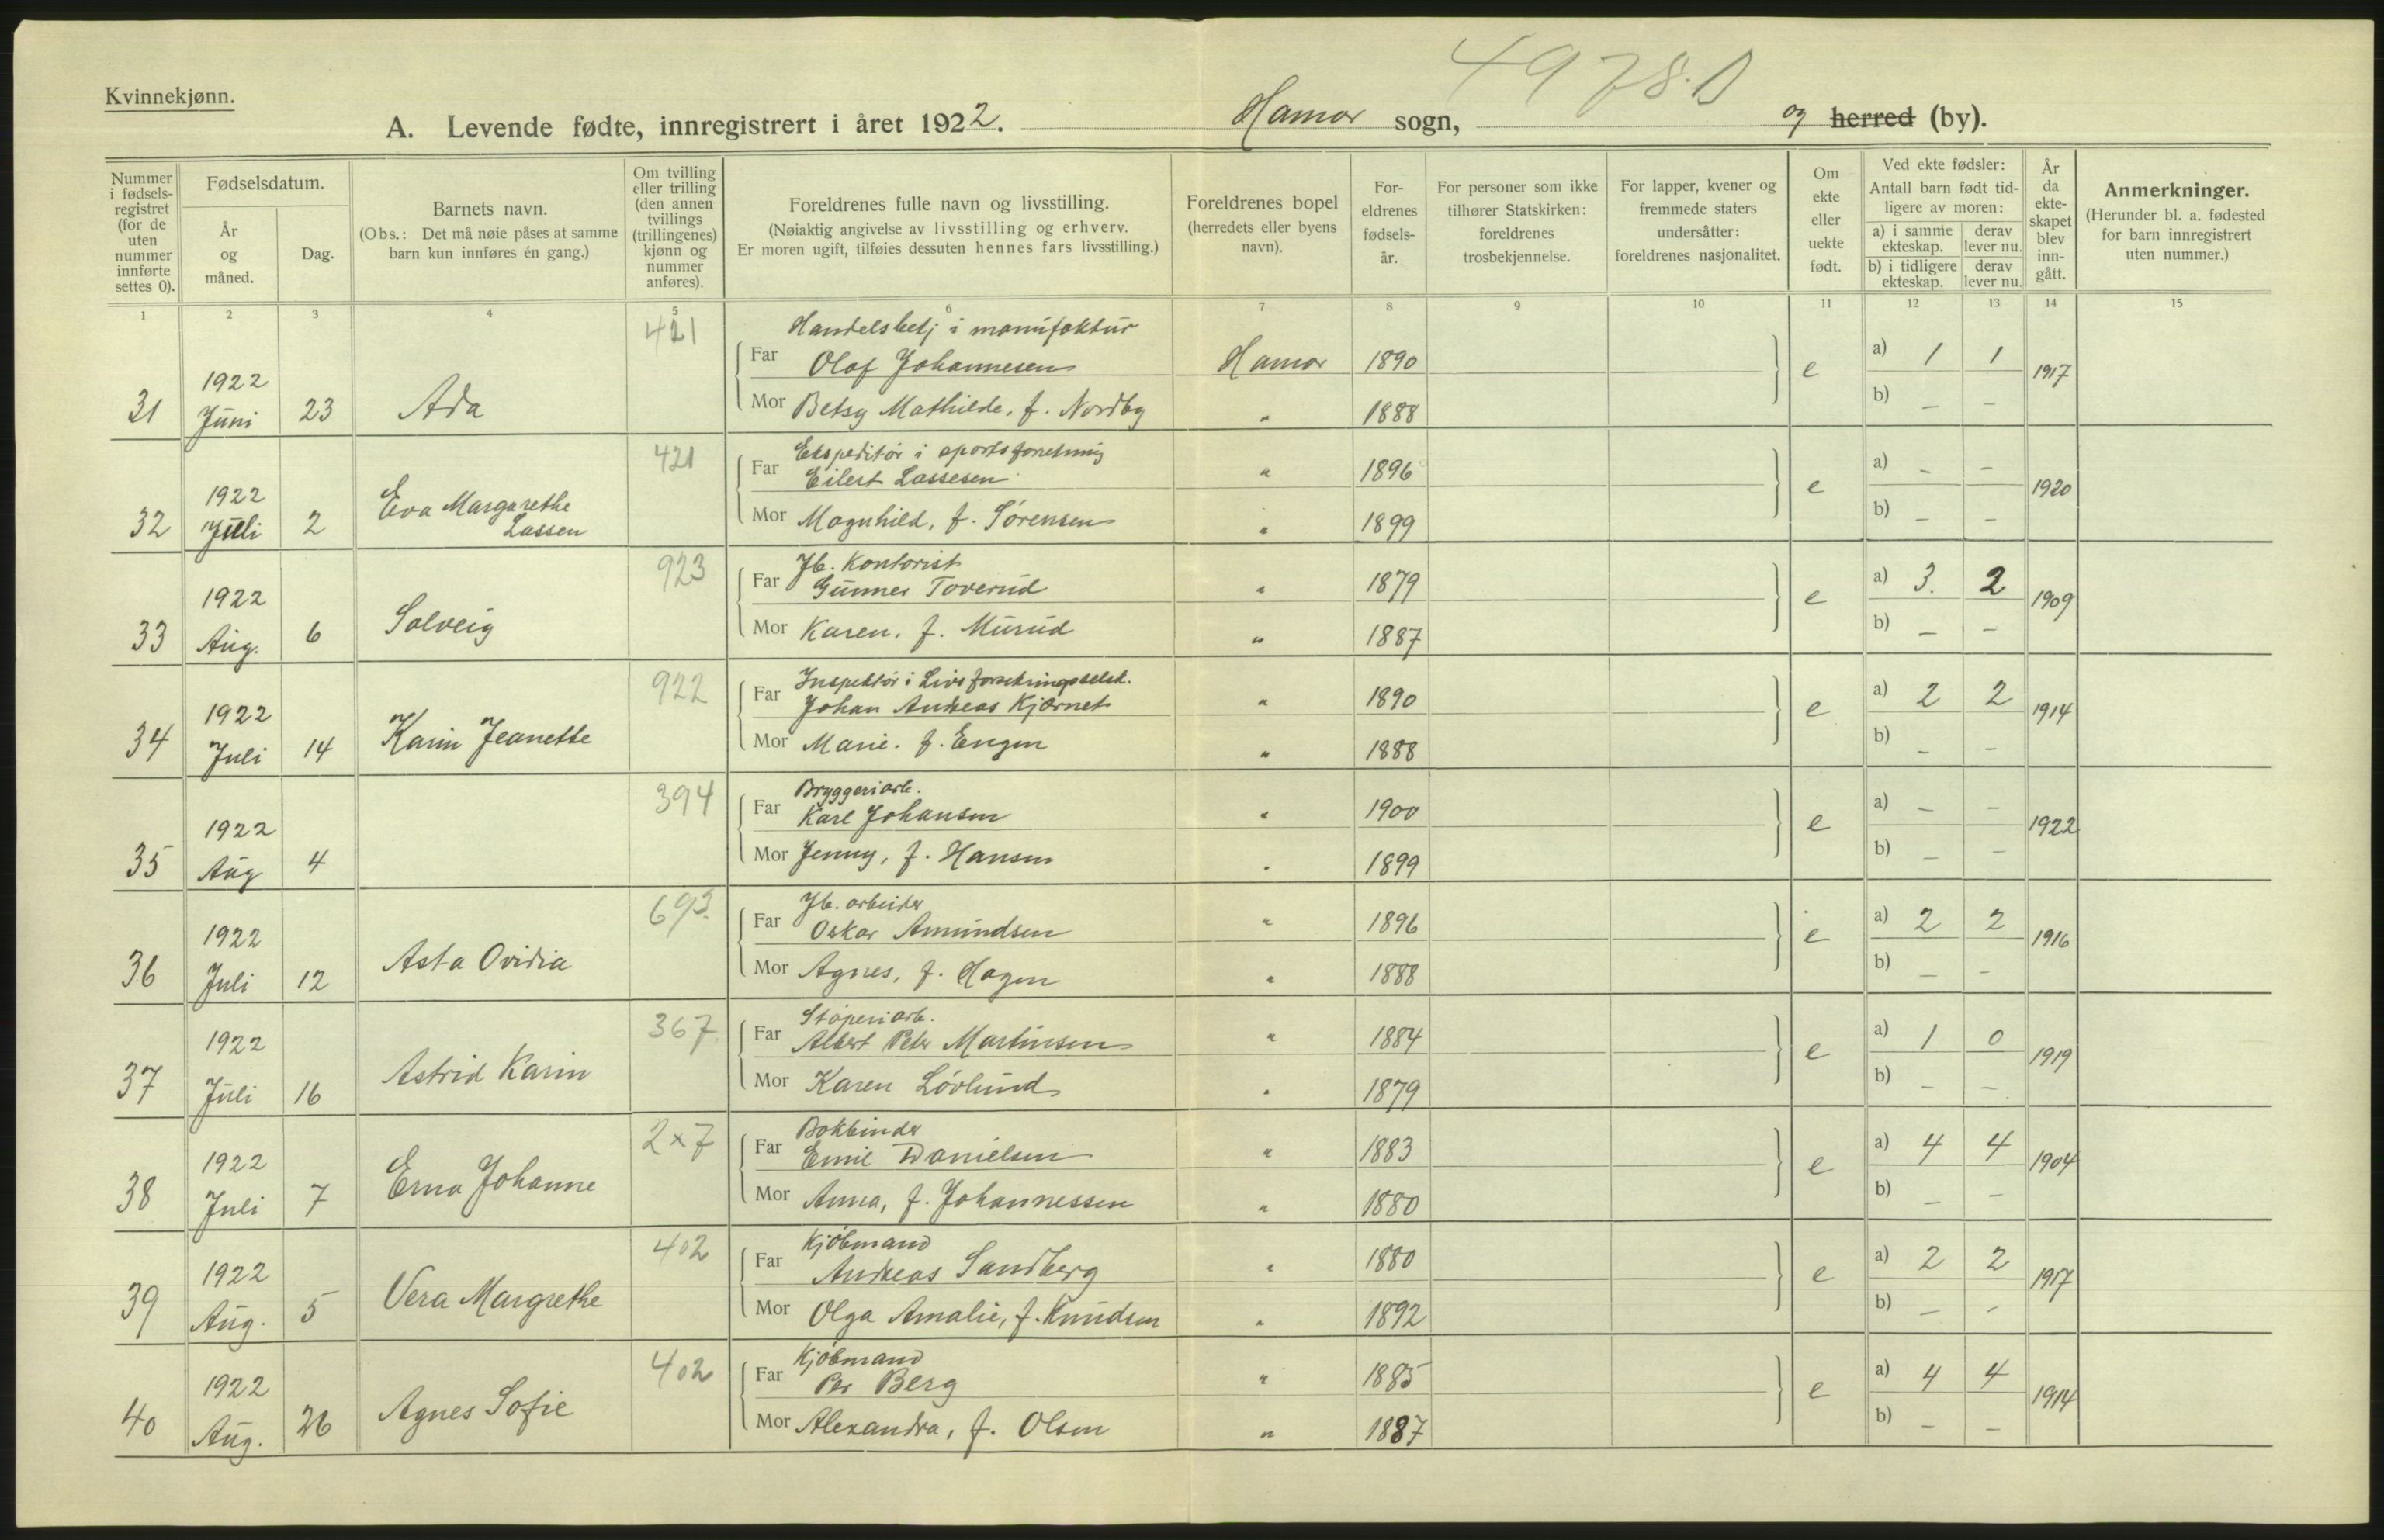 4978.D
Kvinnekjønn.
A. Levende fødte, innregistrert i året 1922.
Hamar sogn, og herred (by).
Nummer i fødsels-registret (for de uten nummer innførte settes 0).
Fødselsdatum.
År og måned.
Dag.
Barnets navn.
(Obs.: Det må nøie påses at samme barn kun innføres én gang.)
Om tvilling eller trilling (den annen tvillings (trillingenes) kjønn og nummer anføres).
Foreldrenes fulle navn og livsstilling.
(Nøiaktig angivelse av livsstilling og erhverv.
Er moren ugift, tilføies dessuten hennes fars livsstilling.)
Foreldrenes bopel (herredets eller byens navn).
For-eldrenes fødsels-år.
For personer som ikke tilhører Statskirken: foreldrenes trosbekjennelse.
For lapper, kvener og fremmede staters undersåtter: foreldrenes nasjonalitet.
Om ekte eller uekte født.
Ved ekte fødsler:
Antall barn født tid-ligere av moren:
a) i samme ekteskap. derav lever nu.
b) i tidligere ekteskap. derav lever nu.
År da ekte-skapet blev inn-gått.
Anmerkninger.
(Herunder bl. a. fødested for barn innregistrert uten nummer.)
1 2 3 4 5 6 7 8 9 10 11 12 13 14 15
421 Handelsbetj i manufaktur
31 1922 Juni 23 Ada
Far Olaf Johannesen Hamar 1890 e a) 1 1 1917
Mor Betsy Mathilde, f. Nordby " 1888 b) – –
421 Ekspeditör i sportsforretning
32 1922 Juli 2 Eva Margarethe Lassen
Far Eilert Lassesen " 1896 e a) – – 1920
Mor Magnhild, f. Sörensen " 1899 b) – –
923 Jb. Kontorist
33 1922 Aug. 6 Solveig
Far Gunner Toverud " 1879 e a) 3. 2 1909
Mor Karen, f. Murud " 1887 b) – –
922 Inspektör i Livsforsikringsselsk.
34 1922 Juli 14 Karin Jeanette
Far Johan Andreas Kjærnet " 1890 e a) 2 2 1914
Mor Marie. f. Engen " 1888 b) – –
394 Bryggeriarb.
35 1922 Aug 4
Far Karl Johansen " 1900 e a) – – 1922
Mor Jenny, f. Hansen " 1899 b) – –
693. Jb. arbeider
36 1922 Juli 12 Asta Ovidia
Far Oskar Amundsen " 1896 e a) 2 2 1916
Mor Agnes, f. Hagen " 1888 b) – –
367. Stöperiarb.
37 1922 Juli 16 Astrid Karin
Far Albert Peter Martinsen " 1884 e a) 1 0 1919
Mor Karen Lövlund " 1879 b) – –
2x7 Bokbinder
38 1922 Juli 7 Erna Johanne
Far Emil Danielsen " 1883 e a) 4 4 1904
Mor Anna, f. Johannessen " 1880 b) – –
402 Kjöbmand
39 1922 Aug. 5 Vera Margrethe
Far Andreas Sandberg " 1880 e a) 2 2 1917
Mor Olga Amalie, f. Knudsen " 1892 b) – –
402 Kjöbmand
40 1922 Aug. 26 Agnes Sofie
Far Per Berg " 1885 e a) 4 4 1914
Mor Alexandra, f. Olsen " 1887 b) – –